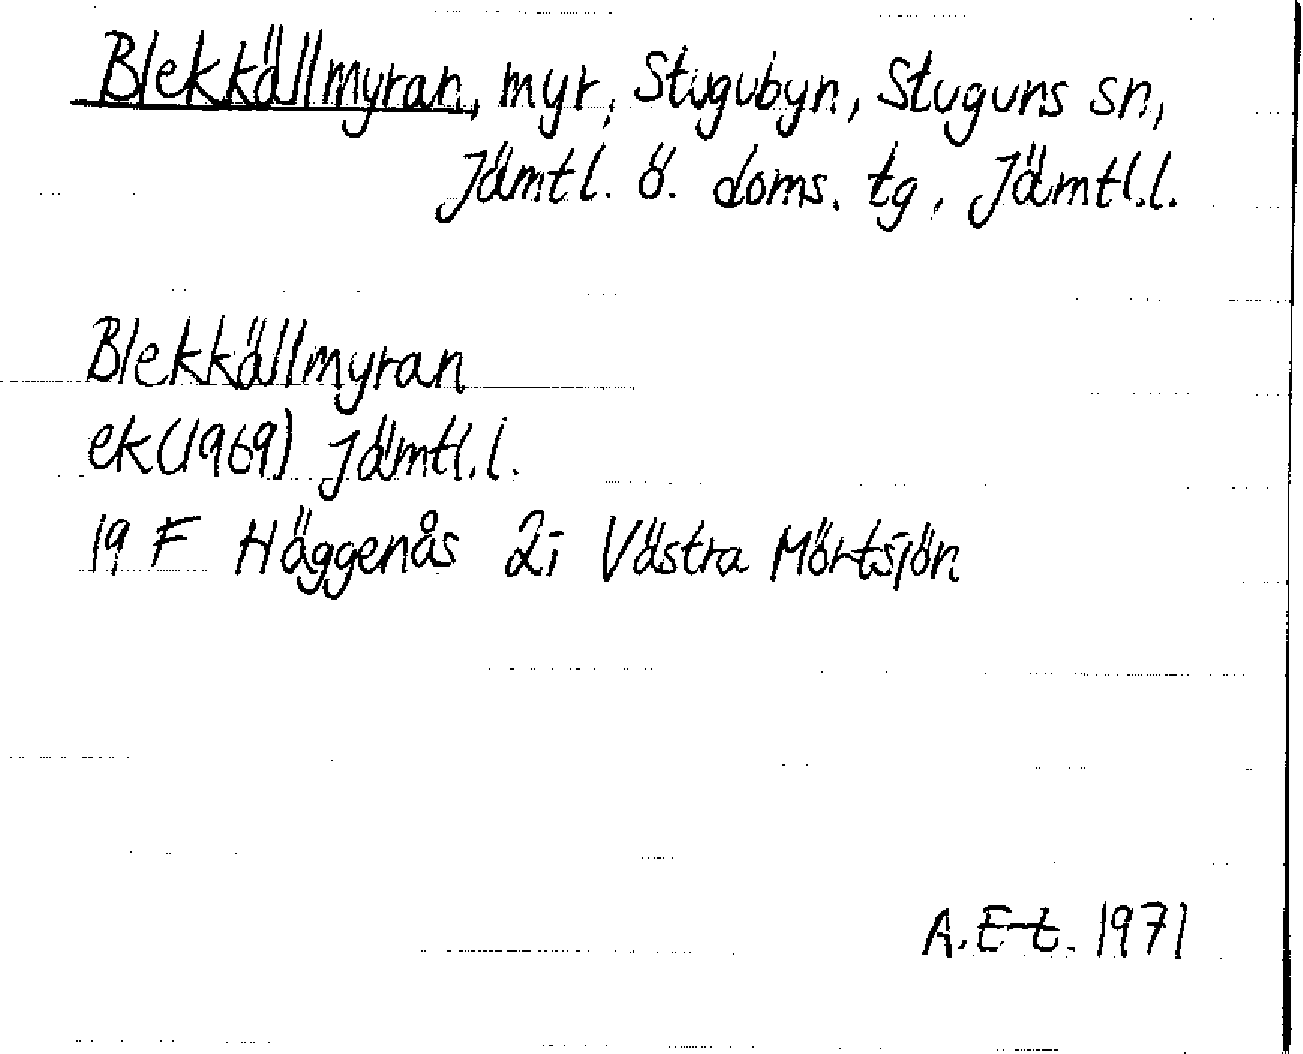 Blekkällmyran, myr, Stugubyn, Stuguns sn,
Jämtl. ö. doms. tg, Jämtl.l.
Blekkällmyran
ek (1969) Jämtl.l.
19 F Häggenås 2i Västra Mörtsjön
A. E-t. 1971